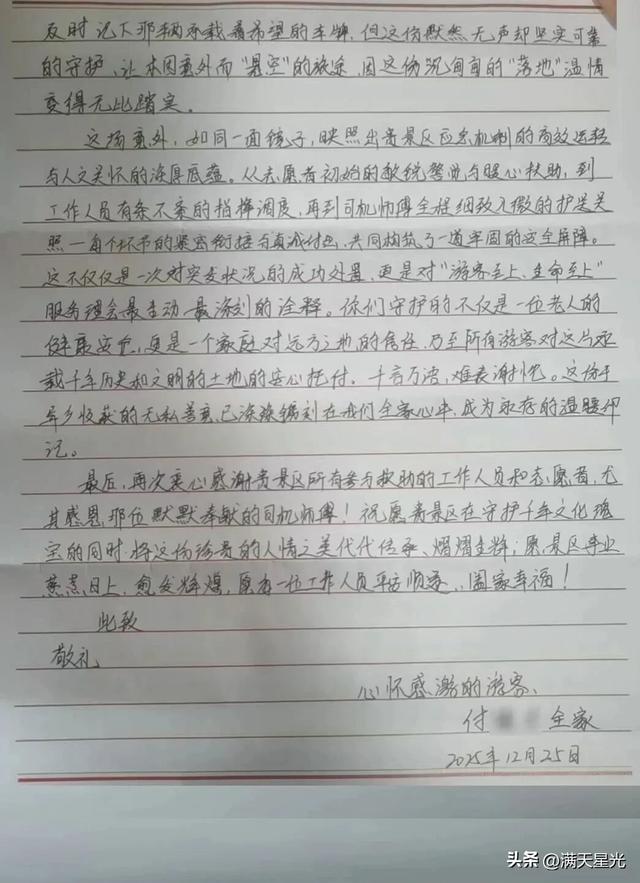 及时记下那辆承载着希望的车牌，但这份默然无声却坚实可靠
的守护，让本因意外而“悬空”的旅途，因这份沉甸甸的“落地”温情
变得无比踏实。
这场意外，如同一面镜子，映照出贵景区应急机制的高效运转
与人文关怀的深厚底蕴。从志愿者初始的敏锐警觉与暖心扶助，到
工作人员有条不紊的指挥调度，再到司机师傅全程细致入微的护送关
照一每个环节的紧密衔接与真诚付出，共同构筑了一道牢固的安全屏障。
这不仅仅是一次对突发状况的成功处置，更是对“游客至上、生命至上”
服务理念最生动、最深刻的诠释。你们守护的不仅是一位老人的
健康安危，更是一个家庭对远方之地的信任，乃至所有游客对这片承
载千年历史和文明的土地的安心托付。千言万语，难表谢忱。这份于
异乡收获的无私善意，已深深镌刻在我们全家心中，成为永存的温暖印
记。
最后，再次衷心感谢贵景区所有参与救助的工作人员和志愿者，尤
其感恩那位默默奉献的司机师傅！祝愿贵景区在守护千年文化瑰
宝的同时，将这份珍贵的人情之美代代传承、熠熠生辉；愿景区事业
蒸蒸日上，愈发辉煌，愿每一位工作人员平安顺遂，阖家幸福！
此致
敬礼
心怀感激的游客、
付 全家
2025年12月25日
头条 @满天星光